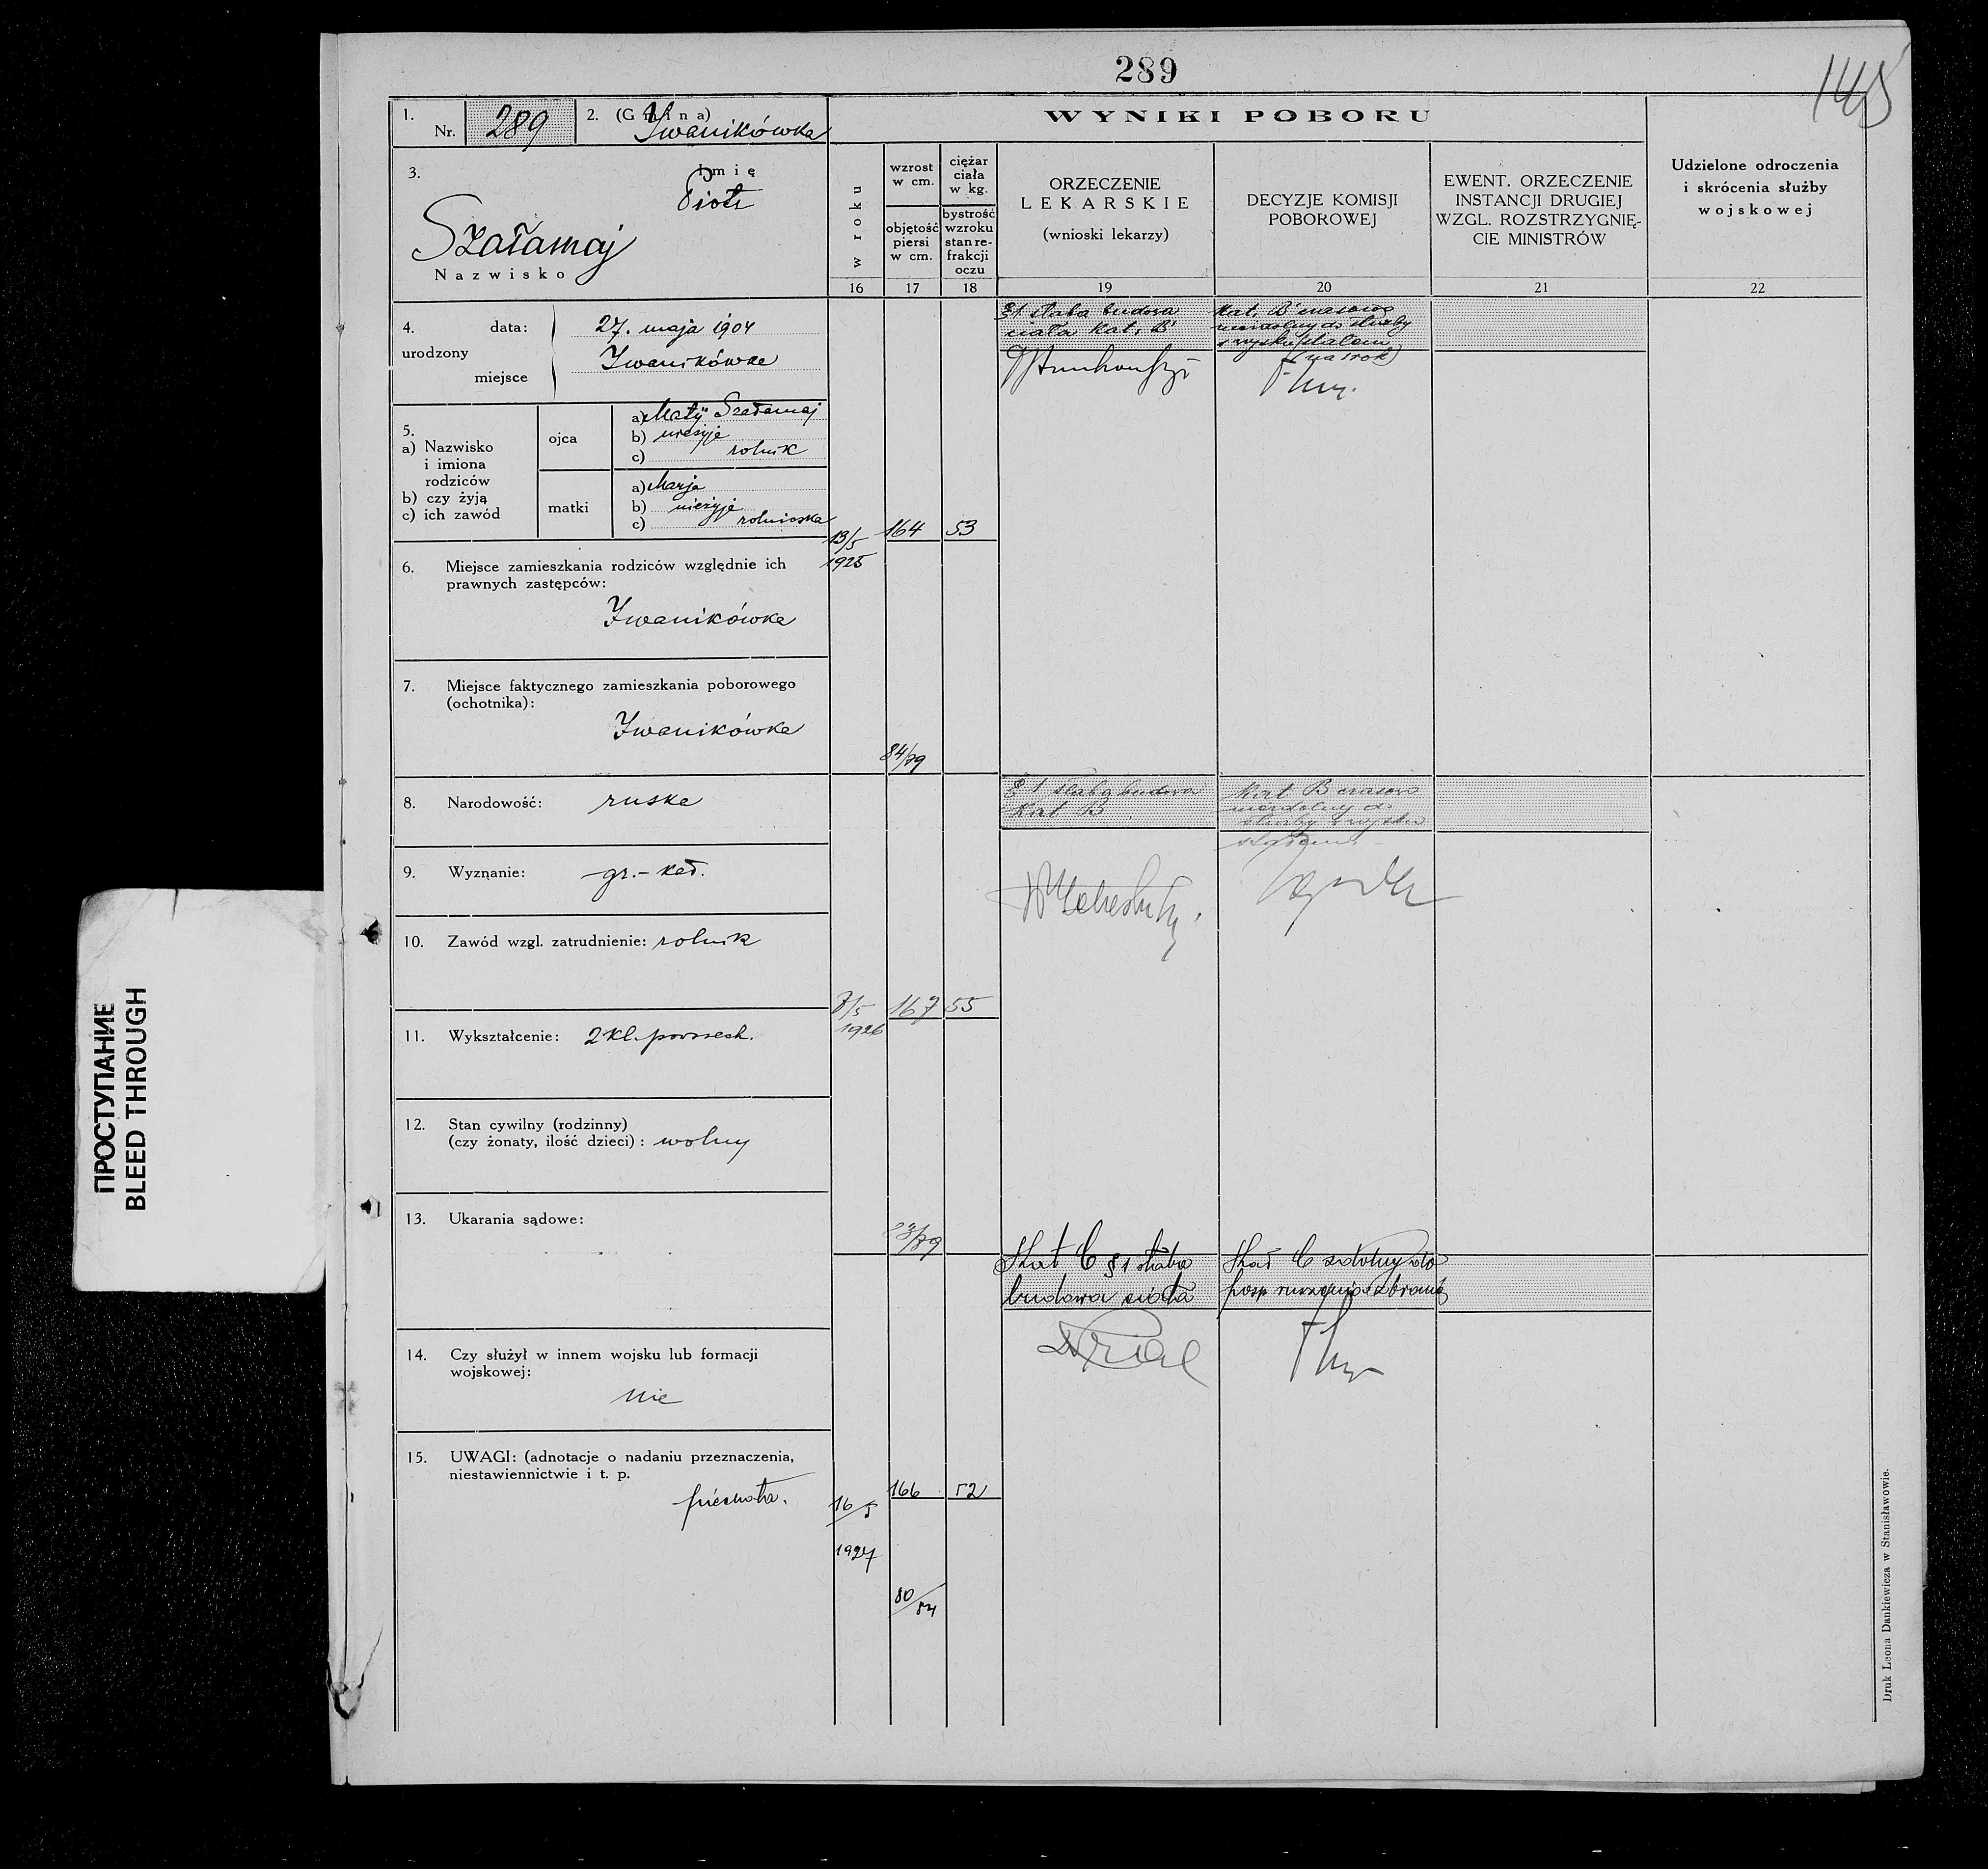 289
145
1. Nr. 289 2. (Gmina) Iwanikówka
WYNIKI POBORU
3. Imię
Piotr
Szałamaj
Nazwisko
w roku
wzrost w cm.
objętość piersi w cm.
ciężar ciała w kg.
bystrość wzroku stan refrakcji oczu
ORZECZENIE
LEKARSKIE
(wnioski lekarzy)
DECYZJE KOMISJI
POBOROWEJ
EWENT. ORZECZENIE
INSTANCJI DRUGIEJ
WZGL. ROZSTRZYGNIĘ-
CIE MINISTRÓW
Udzielone odroczenia
i skrócenia służby
wojskowej
16 17 18 19 20 21 22
4. urodzony
data: 27. maja 1904
miejsce Iwanikówka
5.
a) Nazwisko
i imiona
rodziców
b) czy żyją
c) ich zawód
ojca
a) Matij Szałamaj
b) nieżyje
c) rolnik
matki
a) Marja
b) nieżyje
c) rolniczka
§1 słaba budowa
ciała kat. B
kat. B czasowo
niezdolny do służby
w wojsku stałem
(na 1 rok)
13/5
1925
164 53
84/79
6. Miejsce zamieszkania rodziców względnie ich
prawnych zastępców:
Iwanikówka
7. Miejsce faktycznego zamieszkania poborowego
(ochotnika):
Iwanikówka
8. Narodowość: ruska
§ 1 słaba budowa
Kat B
Kat B czasowo
niezdolny do
służby w wojsku
stałem
9. Wyznanie: gr.-kat.
10. Zawód wzgl. zatrudnienie: rolnik
7/5
1926
167 55
11. Wykształcenie: 2 kl. powszech.
12. Stan cywilny (rodzinny)
(czy żonaty, ilość dzieci): wolny
13. Ukarania sądowe:
/89
Kat C §1 słaba
budowa ciała
Kat C zdolny do
posp. ruszenia z bronią
14. Czy służył w innem wojsku lub formacji
wojskowej:
nie
15. UWAGI: (adnotacje o nadaniu przeznaczenia,
niestawiennictwie i t. p.
piechota.
16/5
1927
166 52
80/84
Druk Leona Dankiewicza w Stanisławowie.
ПРОСТУПАНИЕ
BLEED THROUGH